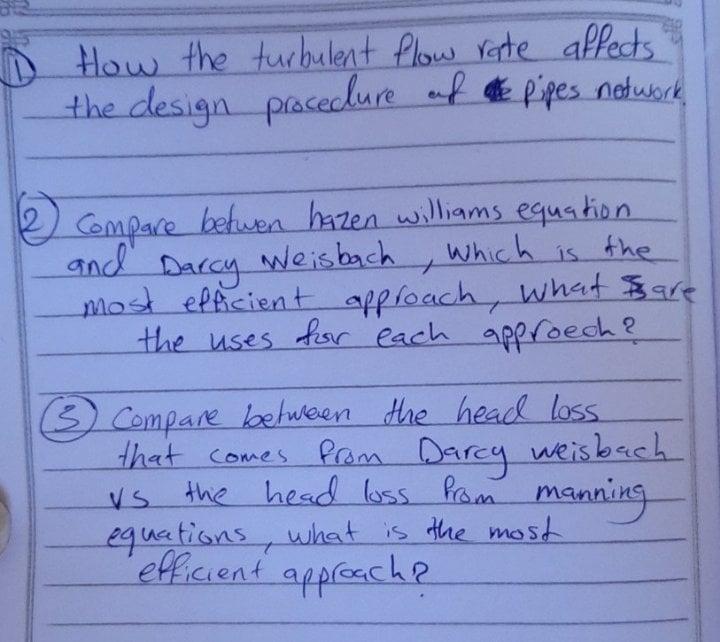 ① How the turbulent flow rate affects
the design procedure of pipes network
② Compare betwen hazen williams equation
and Darcy Weisbach, Which is the
most efficient approach, What are
the uses for each approech?
③ Compare between the head loss
that comes from Darcy weisbach
vs the head loss from manning
equations, what is the most
efficient approach?